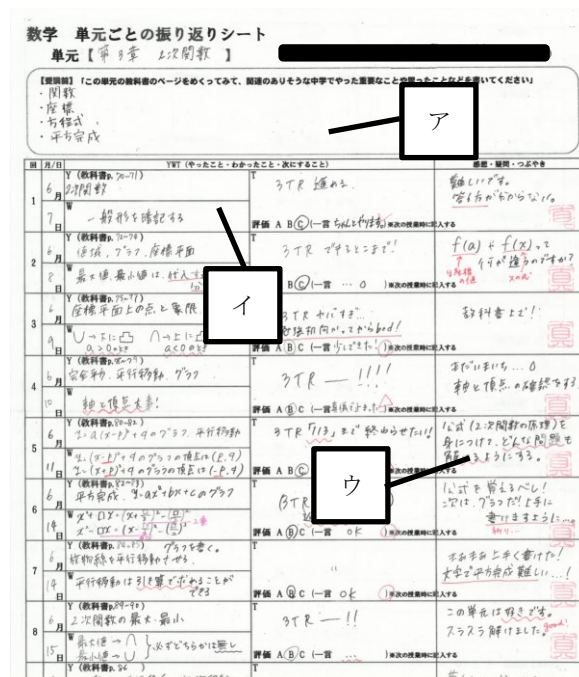 数学 単元ごとの振り返りシート
単元【 第3章 2次関数 】
【受講前】「この単元の教科書のページをめくってみて、関連のありそうな中学でやった重要なことや
・関数
・座標
・方程式
・平方完成
ア
回 月/日 YWT(やったこと・わかったこと・次にすること) 感想・疑問・つぶやき
1 6月7日
Y(教科書p.70-71)
2次関数
W
一般形を暗記する
T
3TR 進める
評価 A B C (一言 ちゃんとやります。)※次の授業時に記入する
難しいです。
答え方が分からない。
2 6月8日
Y(教科書p.72-74)
値域、グラフ、座標平面
W
最大値、最小値は、代入
T
3TR できるとこまで!
B C (一言 … )※次の授業時に記入する
f(a) + f(x)って
何が違うのですか?
イ
3 6月9日
Y(教科書p.75-77)
座標平面上の点と象限
W
∪→下に凸 ∩→上に凸
a>0のとき a<0のとき
T
3TR やバすぎ…
評価 A B C (一言 少しできた! )※次の授業時に記入する
教科書上で!
4 6月10日
Y(教科書p.78-79)
W
軸と頂点大事!
T
3TR ー !!!!
評価 A B C (一言 )※次の授業時に記入する
まだいまいち…
軸と頂点の確認をする。
5 6月11日
Y(教科書p.80-82)
y=a(x-p)²+qのグラフ 平行移動
W
y=(x-p)²+qのグラフの頂点は(p,q)
T
3TR 7/13 まで終わらせたい!!
評価 A B
公式(2次関数の原理)を
身につけて、どんな問題も
解けるようにする。
ウ
6 6月14日
Y(教科書p.82-83)
平方完成、y=ax²+bx+cのグラフ
W
T
3TR
評価 A B C (一言 OK )※次の授業時に記入する
公式を覚えるべし!
次は、グラフだ!上手に
書けますように…
祈り…
7 6月14日
Y(教科書p.84-85) グラフを書く。
放物線を平行移動させる。
W
平行移動は引き算で求めることができる
T
〃
評価 A B C (一言 OK )※次の授業時に記入する
まあまあ上手く書けた!
文字で平方完成難しい…!
8 6月15日
Y(教科書p.89-90)
2次関数の最大・最小
W
最大値→∩
最小値→∪
必ずどちらかは無し
T
3TR ー !!
評価 A B C (一言 … )※次の授業時に記入する
この単元は好きです。
スラスラ解けました。
good!
Y(教科書p.86 )
T